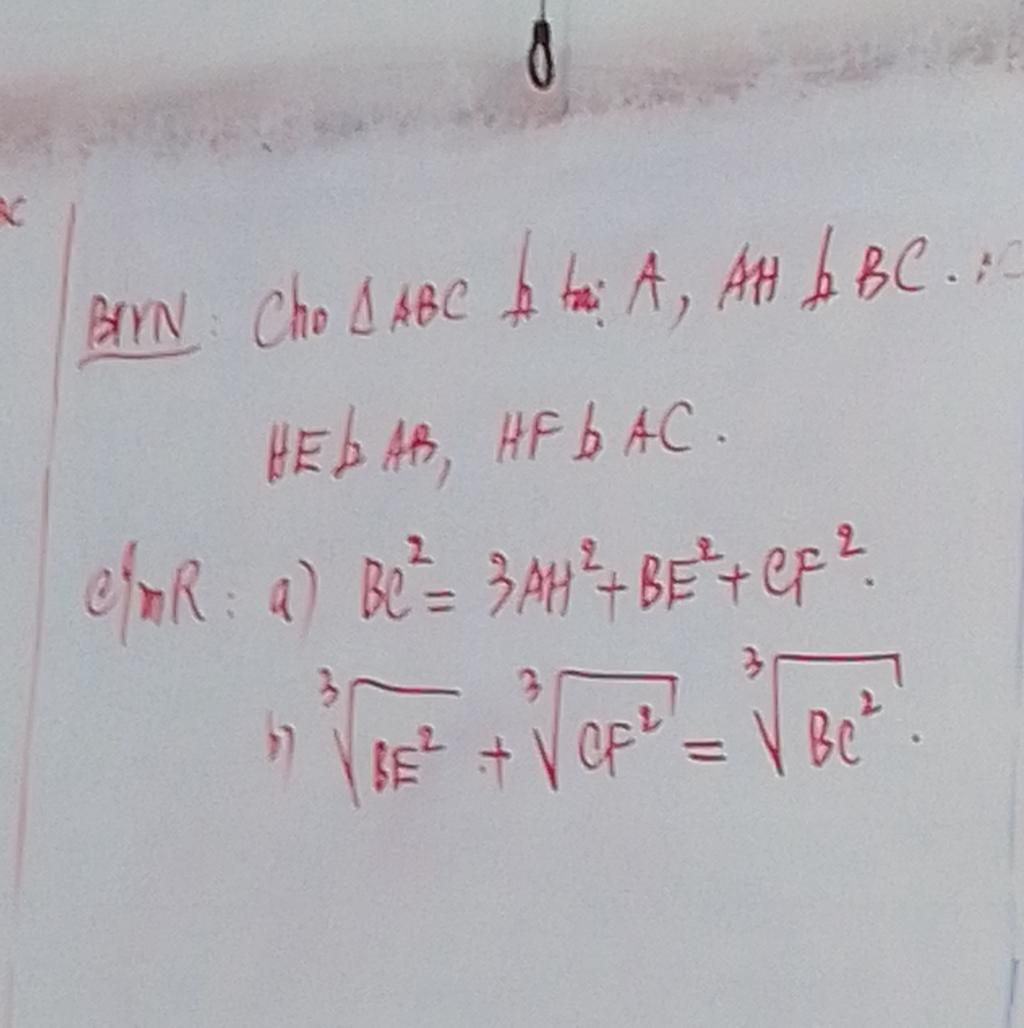 BTVN: Cho Δ ABC ⊥ tại A, AH ⊥ BC.
HE ⊥ AB, HF ⊥ AC.
C/mR: a) BC² = 3AH² + BE² + CF².
b) ∛BE² + ∛CF² = ∛BC².